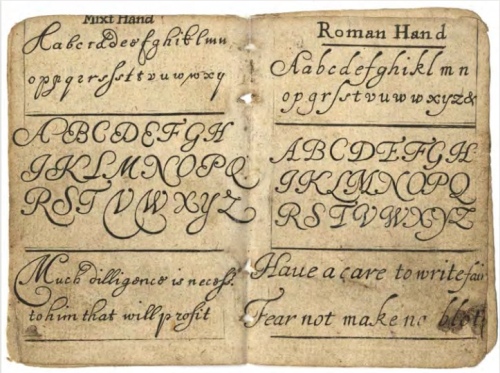 Mixt Hand
Aabcddeefghiklmn
oppqrsſsttvuwwxy
ABCDEFGH
IJKLMNOPQ
RSTVWXYZ
Much dilligence is necess.
to him that will profit
Roman Hand
Aabcdefghiklmn
opqrſstvuwwxyz&
ABCDEFGH
IJKLMNOPQ
RSTVWXYZ
Have a care to write fair
Fear not make no blot